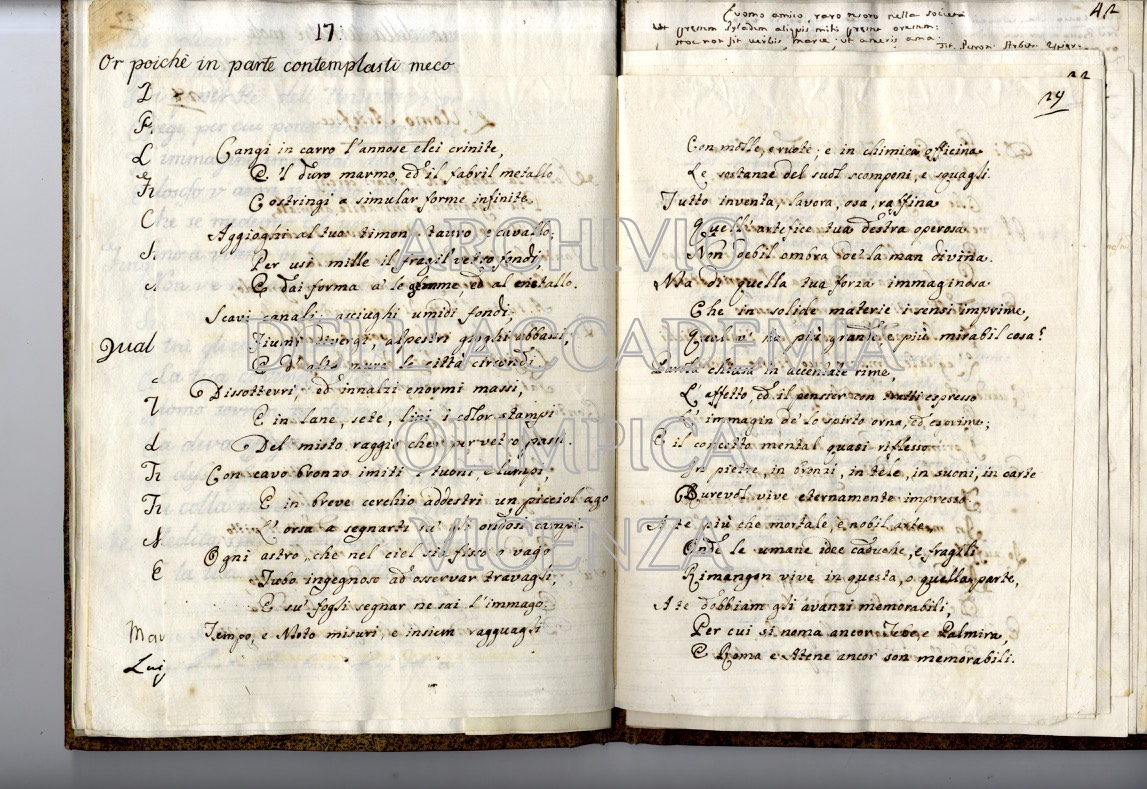 17
Or poichè in parte contemplasti meco
Cangi in carro l'annose elci crinite,
E 'l duro marmo, ed il fabril metallo
Costringi a simular forme infinite
Aggioghi al tuo timon tauro, e cavallo;
Per usi mille il fragil vetro fondi,
E dai forma a le gemme, ed al metallo.
Scavi canali, asciughi umidi fondi,
Fiumi divergi, alpestri gioghi abbassi,
E d'alte mura le città circondi.
Dissotterri, ed innalzi enormi massi,
E in lane, sete, lini i color stampi
Del misto raggio che per vetro passi.
Con cavo bronzo imiti i tuoni, e lampi;
E in breve cerchio addestri un picciol ago
L'orsa a segnarti ne' gli ondosi campi.
Ogni astro, che nel ciel sia fisso o vago
Tubo ingegnoso ad osservar travagli,
E su' fogli segnar ne sai l'immago.
Tempo, e Moto misuri, e insiem ragguagli
Qual
42
Tuomo amico, raro tesoro nella società
ARCHIVIO
DELL'ACCADEMIA
OLIMPICA
VICENZA
22
29
Con molle, e ruote; e in chimica officina
Le sostanze del suol scomponi, e sguagli.
Tutto inventa, lavora, osa, raffina
Quell'artefice tua destra operosa
Non debil ombra de la man divina.
Ma di quella tua forza immaginosa
Che in solide materie i sensi imprime,
Qual v' ha più grande e più mirabil cosa?
chiusi in accentate rime,
L'affetto, ed il pensier con tratti espresso
L'immagin de lo spirto orna, ed esprime;
E il concetto mental quasi riflesso
In pietre, in bronzi, in tele, in suoni, in carte
Durevol vive eternamente impresso.
A te più che mortale, e nobil arte,
Onde le umane idee caduche, e fragili
Rimangon vive in questa, o quella parte,
A te dobbiam gli avanzi memorabili,
Per cui si noma ancor Tebe, e Palmira,
E Roma e Atene ancor son memorabili.